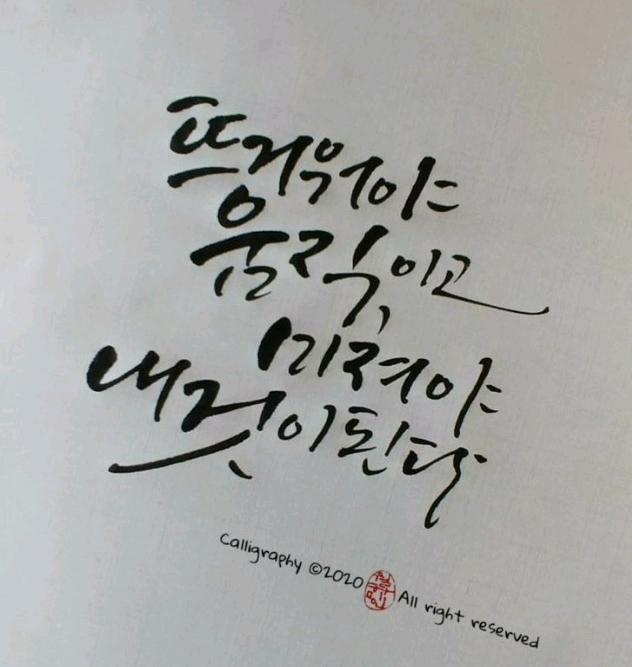 뜨거워야
움직이고
미쳐야
내것이 된다
Calligraphy ©2020 All right reserved